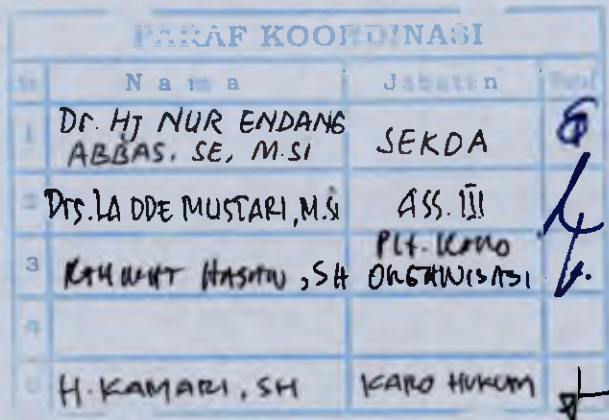 PARAF KOORDINASI
No Nama Jabatan Paraf
1 Dr. HJ NUR ENDANG
ABBAS. SE, M.SI SEKDA
2 Drs. LA ODE MUSTARI, M.Si ASS. III
3 RAHMAT HASAN, SH Plt. KARO
ORGANISASI
4
5 H. KAMARI, SH KARO HUKUM